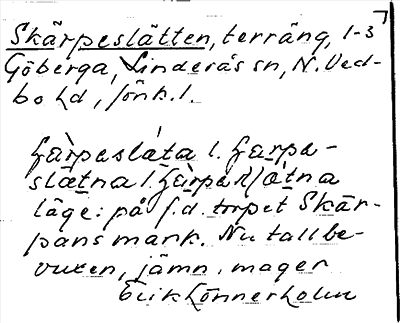 Skärpeslätten, terräng, 1-3
Göberga, Linderås sn, N. Ved-
bo hd, Jönk. l.
slætna l.
läge: på f.d. torpet Skär-
pans mark. Nu tallbe-
vuxen, jämn, mager
Erik Lönnerholm